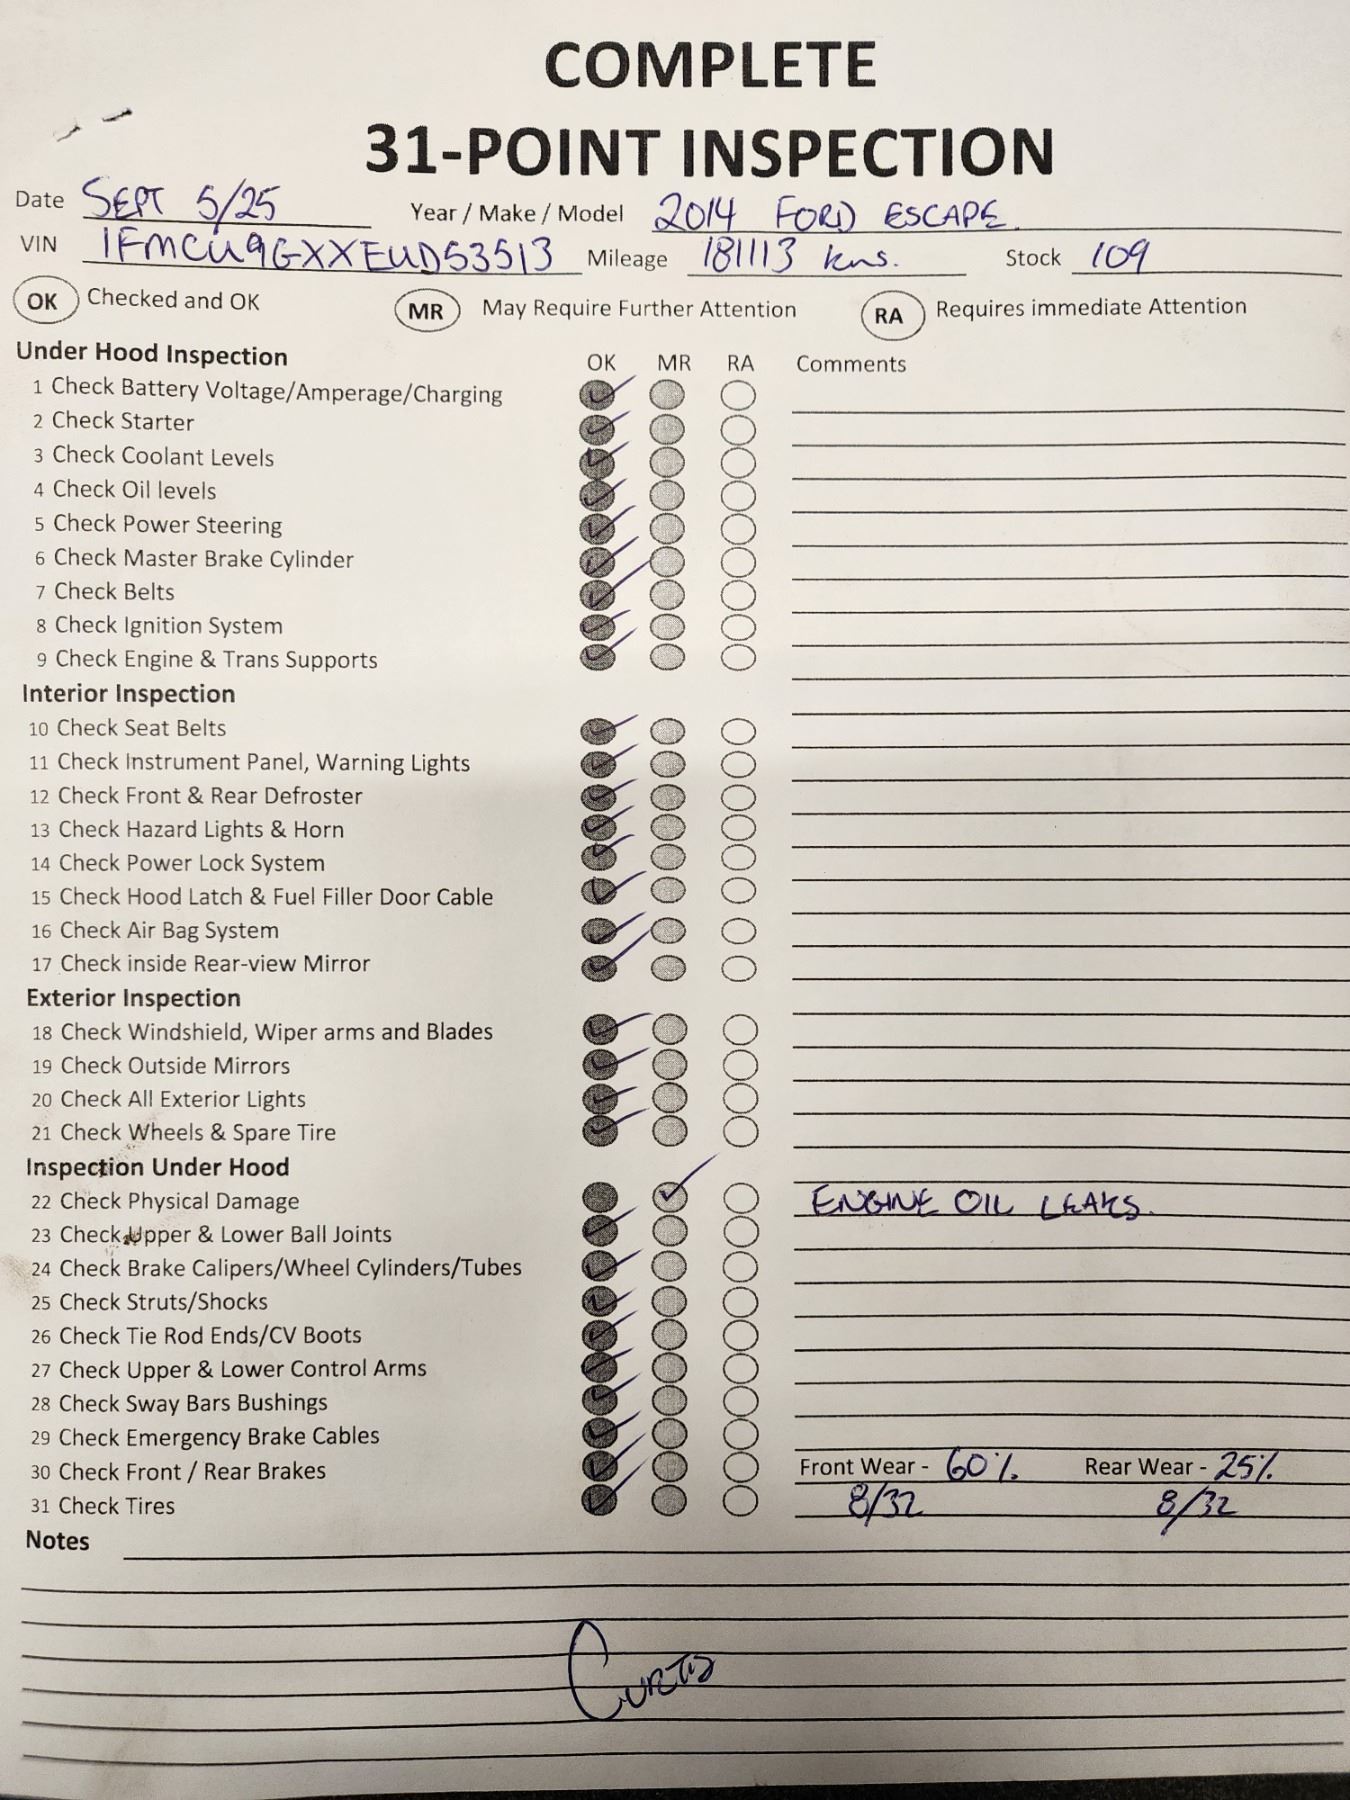 COMPLETE
31-POINT INSPECTION
Date SEPT 5/25 Year / Make / Model 2014 FORD ESCAPE.
VIN 1FMCU9GXXEUD53513 Mileage 181113 kms. Stock 109
OK Checked and OK MR May Require Further Attention RA Requires immediate Attention
Under Hood Inspection OK MR RA Comments
1 Check Battery Voltage/Amperage/Charging
2 Check Starter
3 Check Coolant Levels
4 Check Oil levels
5 Check Power Steering
6 Check Master Brake Cylinder
7 Check Belts
8 Check Ignition System
9 Check Engine & Trans Supports
Interior Inspection
10 Check Seat Belts
11 Check Instrument Panel, Warning Lights
12 Check Front & Rear Defroster
13 Check Hazard Lights & Horn
14 Check Power Lock System
15 Check Hood Latch & Fuel Filler Door Cable
16 Check Air Bag System
17 Check inside Rear-view Mirror
Exterior Inspection
18 Check Windshield, Wiper arms and Blades
19 Check Outside Mirrors
20 Check All Exterior Lights
21 Check Wheels & Spare Tire
Inspection Under Hood
22 Check Physical Damage ENGINE OIL LEAKS.
23 Check Upper & Lower Ball Joints
24 Check Brake Calipers/Wheel Cylinders/Tubes
25 Check Struts/Shocks
26 Check Tie Rod Ends/CV Boots
27 Check Upper & Lower Control Arms
28 Check Sway Bars Bushings
29 Check Emergency Brake Cables
30 Check Front / Rear Brakes Front Wear - 60% Rear Wear - 25%
31 Check Tires 8/32 8/32
Notes
CURTIS